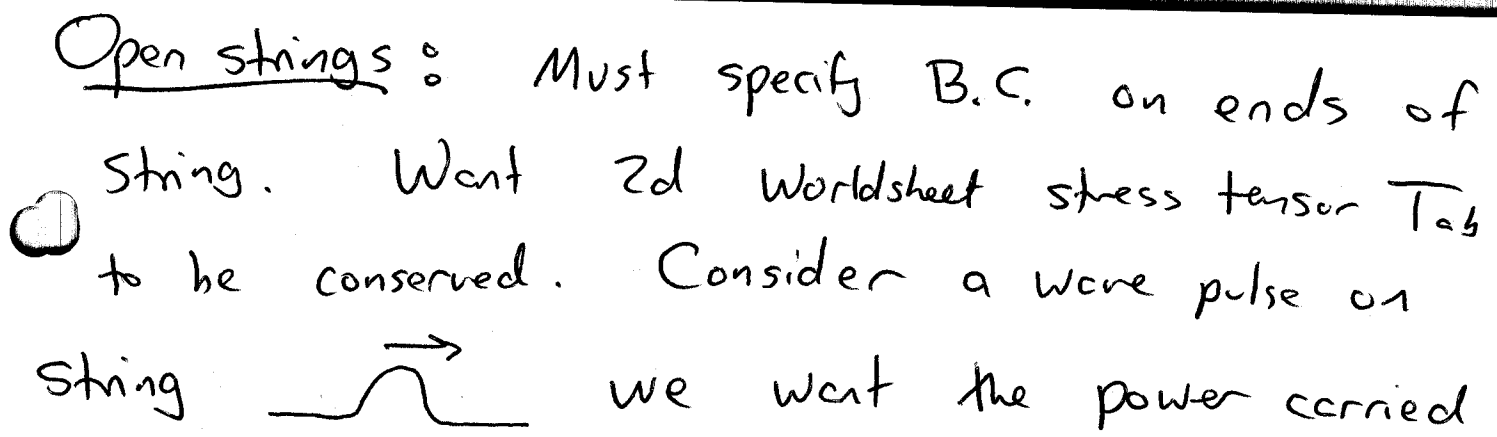 Open strings: Must specify B.C. on ends of
string. Want 2d worldsheet stress tensor Tab
to be conserved. Consider a wave pulse on
string we want the power carried